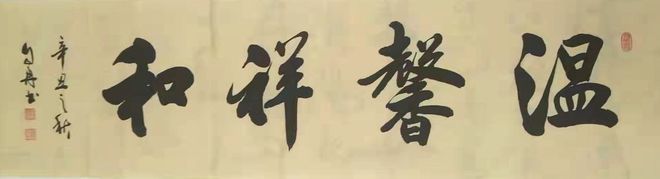 温馨祥和
辛丑之秋
书